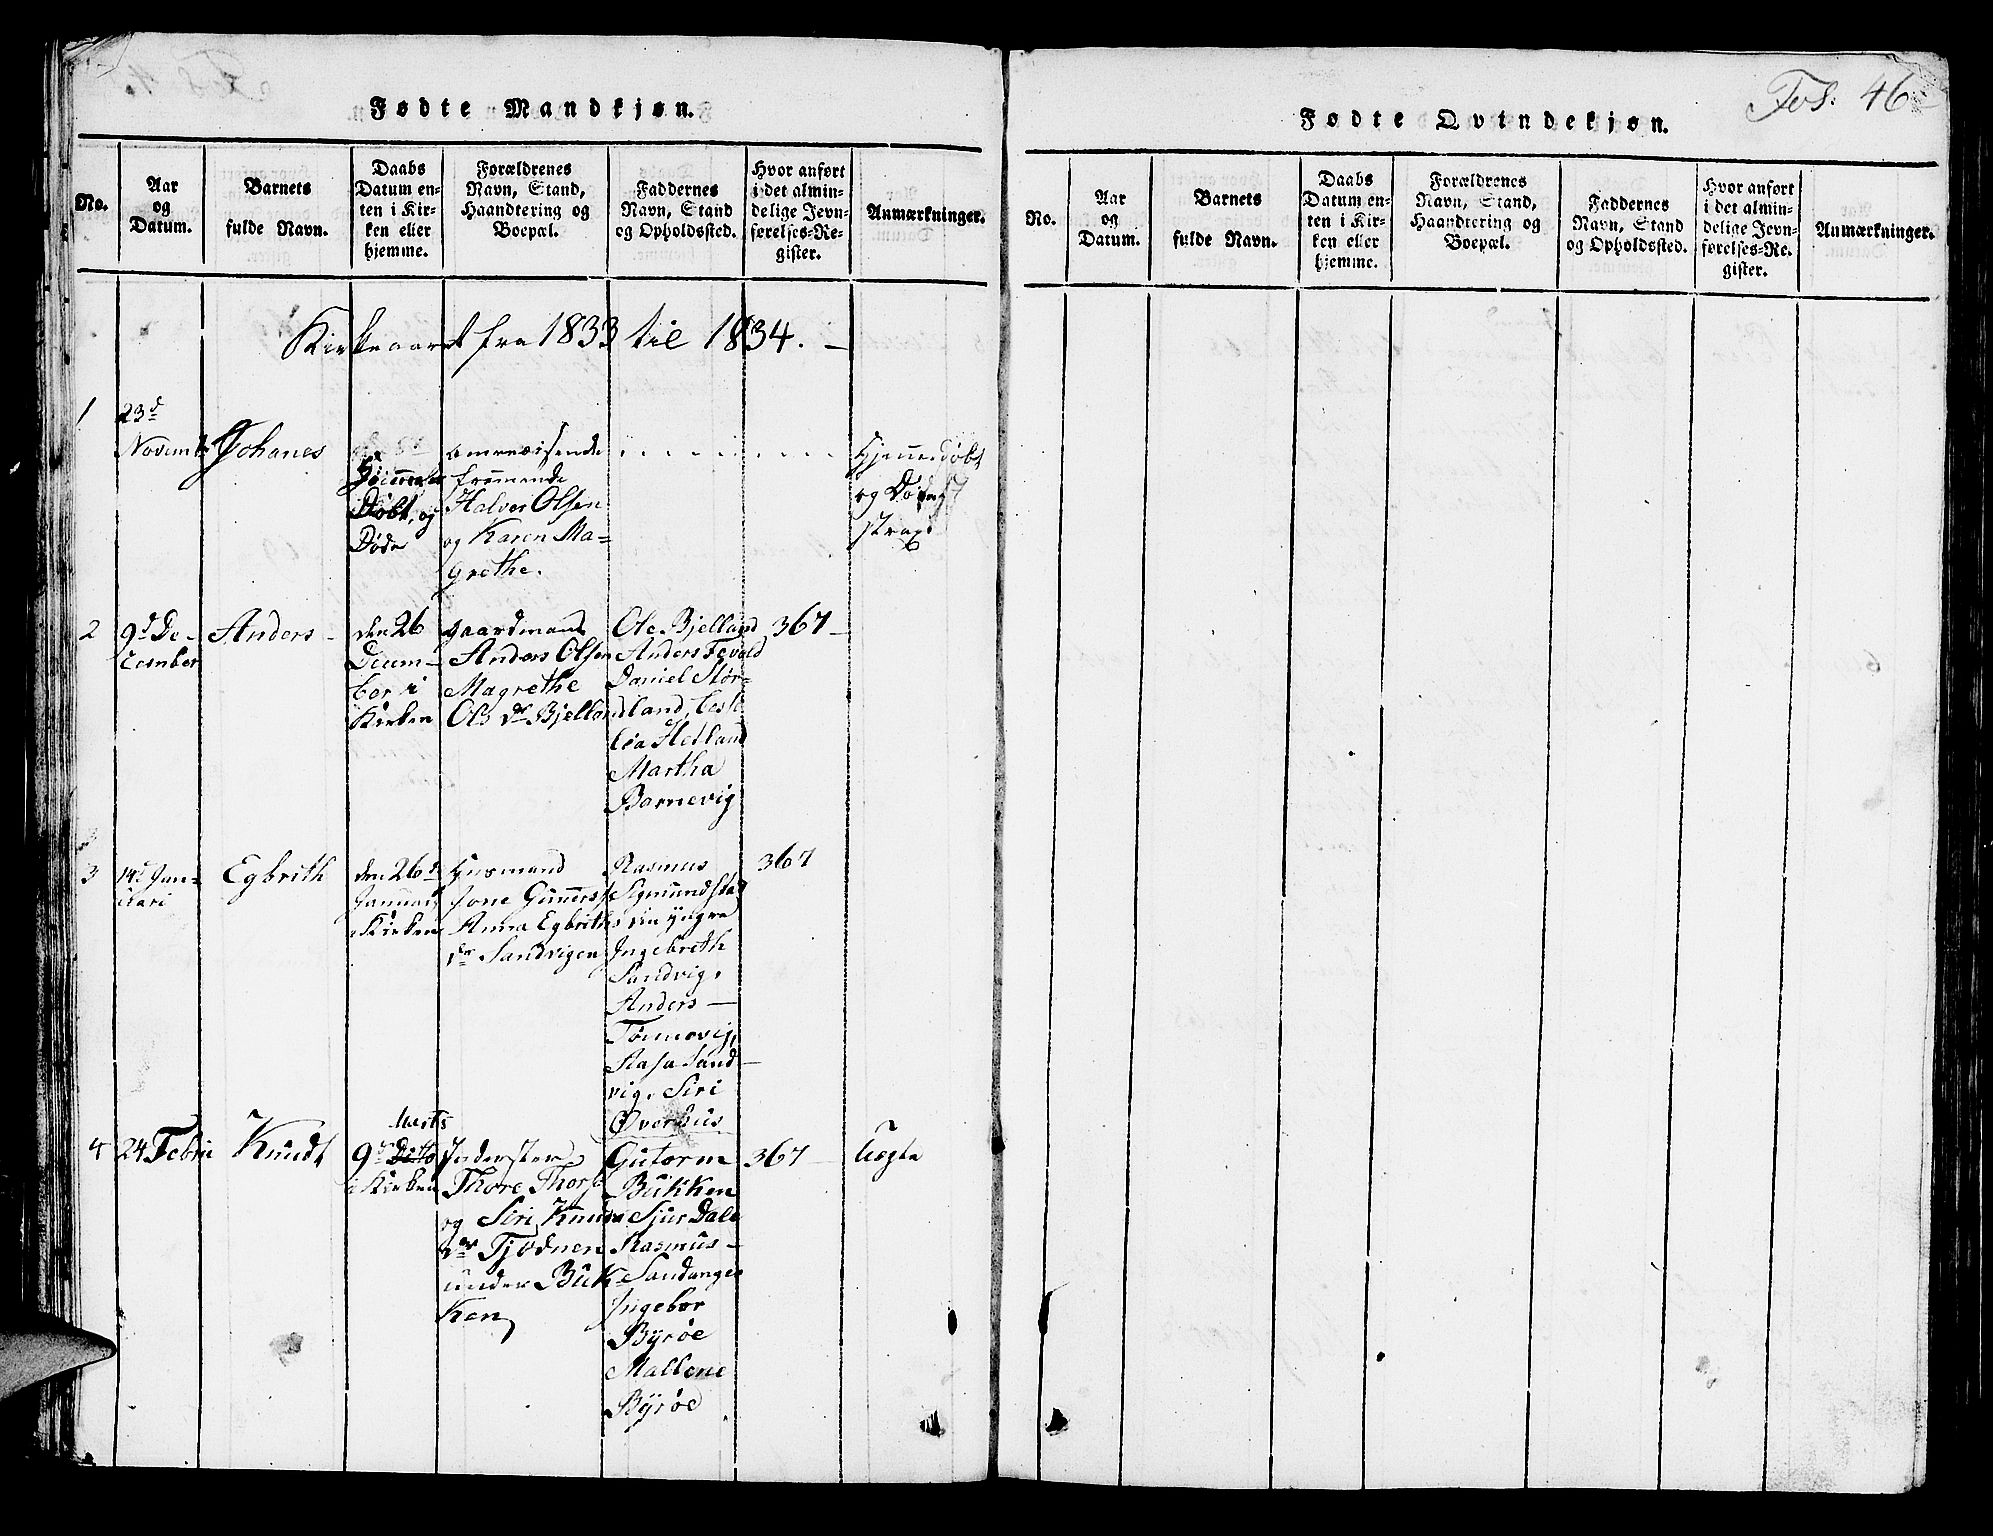 Fødte Mandkjøn.
No.
Aar
og
Datum.
Barnets
fulde Navn.
Daabs
Datum en-
ten i Kir-
ken eller
hjemme.
Forældrenes
Navn, Stand,
Haandtering og
Boepæl.
Faddernes
Navn, Stand
og Opholdssted.
Hvor anført
i det almin-
delige Jevn-
førelses-Re-
gister.
Anmærkninger.
Kirkeaaret fra 1833 til 1834. —
1
23d
Novemb
Johanes
Døbt, og
Døde
omreisende
Halvor Olsen
og Karen Ma=
grethe.
Hjemmedøbt
og Død
strax
2
9d De-
cember
Anders -
den 26
Decem-
ber i
Kirken
gaardmand
Anders Olsen
Magrethe
Ols dr Bjelland
Ole Bjelland
Anders Tevold
Daniel Stør-
land,
Hetland
Martha
Barnevig
367 -
3
14d Jan-
uari
Egbrith
den 26d
Januari
Kirken
Husmand
Jone Gunners
Anna Egbriths
dr Sandvigen
Rasmus
Sigmundstad
den yngre
Ingebreth
Sandvig,
Anders —
Tønnevig,
Rasa Sand-
vig, Siri
Øverhus
367
4
24 Febru
Knudt
Marts
9d Ditto
i Kirken
Inderster
Thore Thors
og Siri Knuds
dr Tjødnen
under Buk-
ken
Gutorm
Bukken
Sjur Dale
Rasmus -
Sandanger
Ingebor
Byrøe
Mallene
Byrøe
367 -
Ægte
Fødte Qvindekjøn.
Fol: 46
No.
Aar
og
Datum.
Barnets
fulde Navn.
Daabs
Datum en-
ten i Kir-
ken eller
hjemme.
Forældrenes
Navn, Stand,
Haandtering og
Boepæl.
Faddernes
Navn, Stand
og Opholdssted.
Hvor anført
i det almin-
delige Jevn-
førelses-Re-
gister.
Anmærkninger.